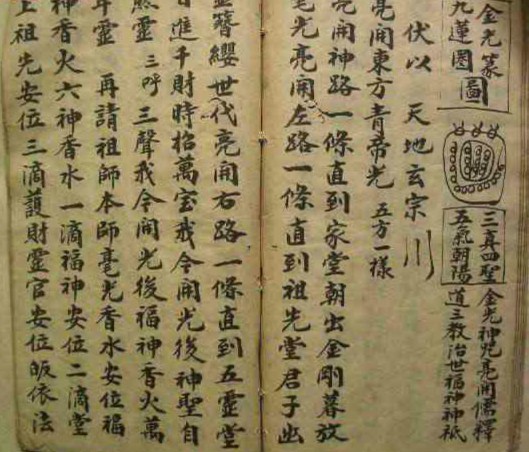 金光篆
九蓮圈圖
三真四聖
五氣朝陽
金光神咒亮開儒釋
道三教治世福神神祇
伏以 天地玄宗川
亮開東方青帝光 五方一樣
亮開神路一條直到家堂朝出金剛暮放
毫光亮開左路一條直到祖先堂君子出
簪纓世代亮開右路一條直到五靈堂
日進千財時招萬宝我今開光後神聖自
然靈 三呼 三聲我今開光後福神香火萬
年靈 再請祖師本師毫光香水安位福
神香火六神香水一滴福神安位二滴堂
上祖先安位三滴護財靈官安位皈依法